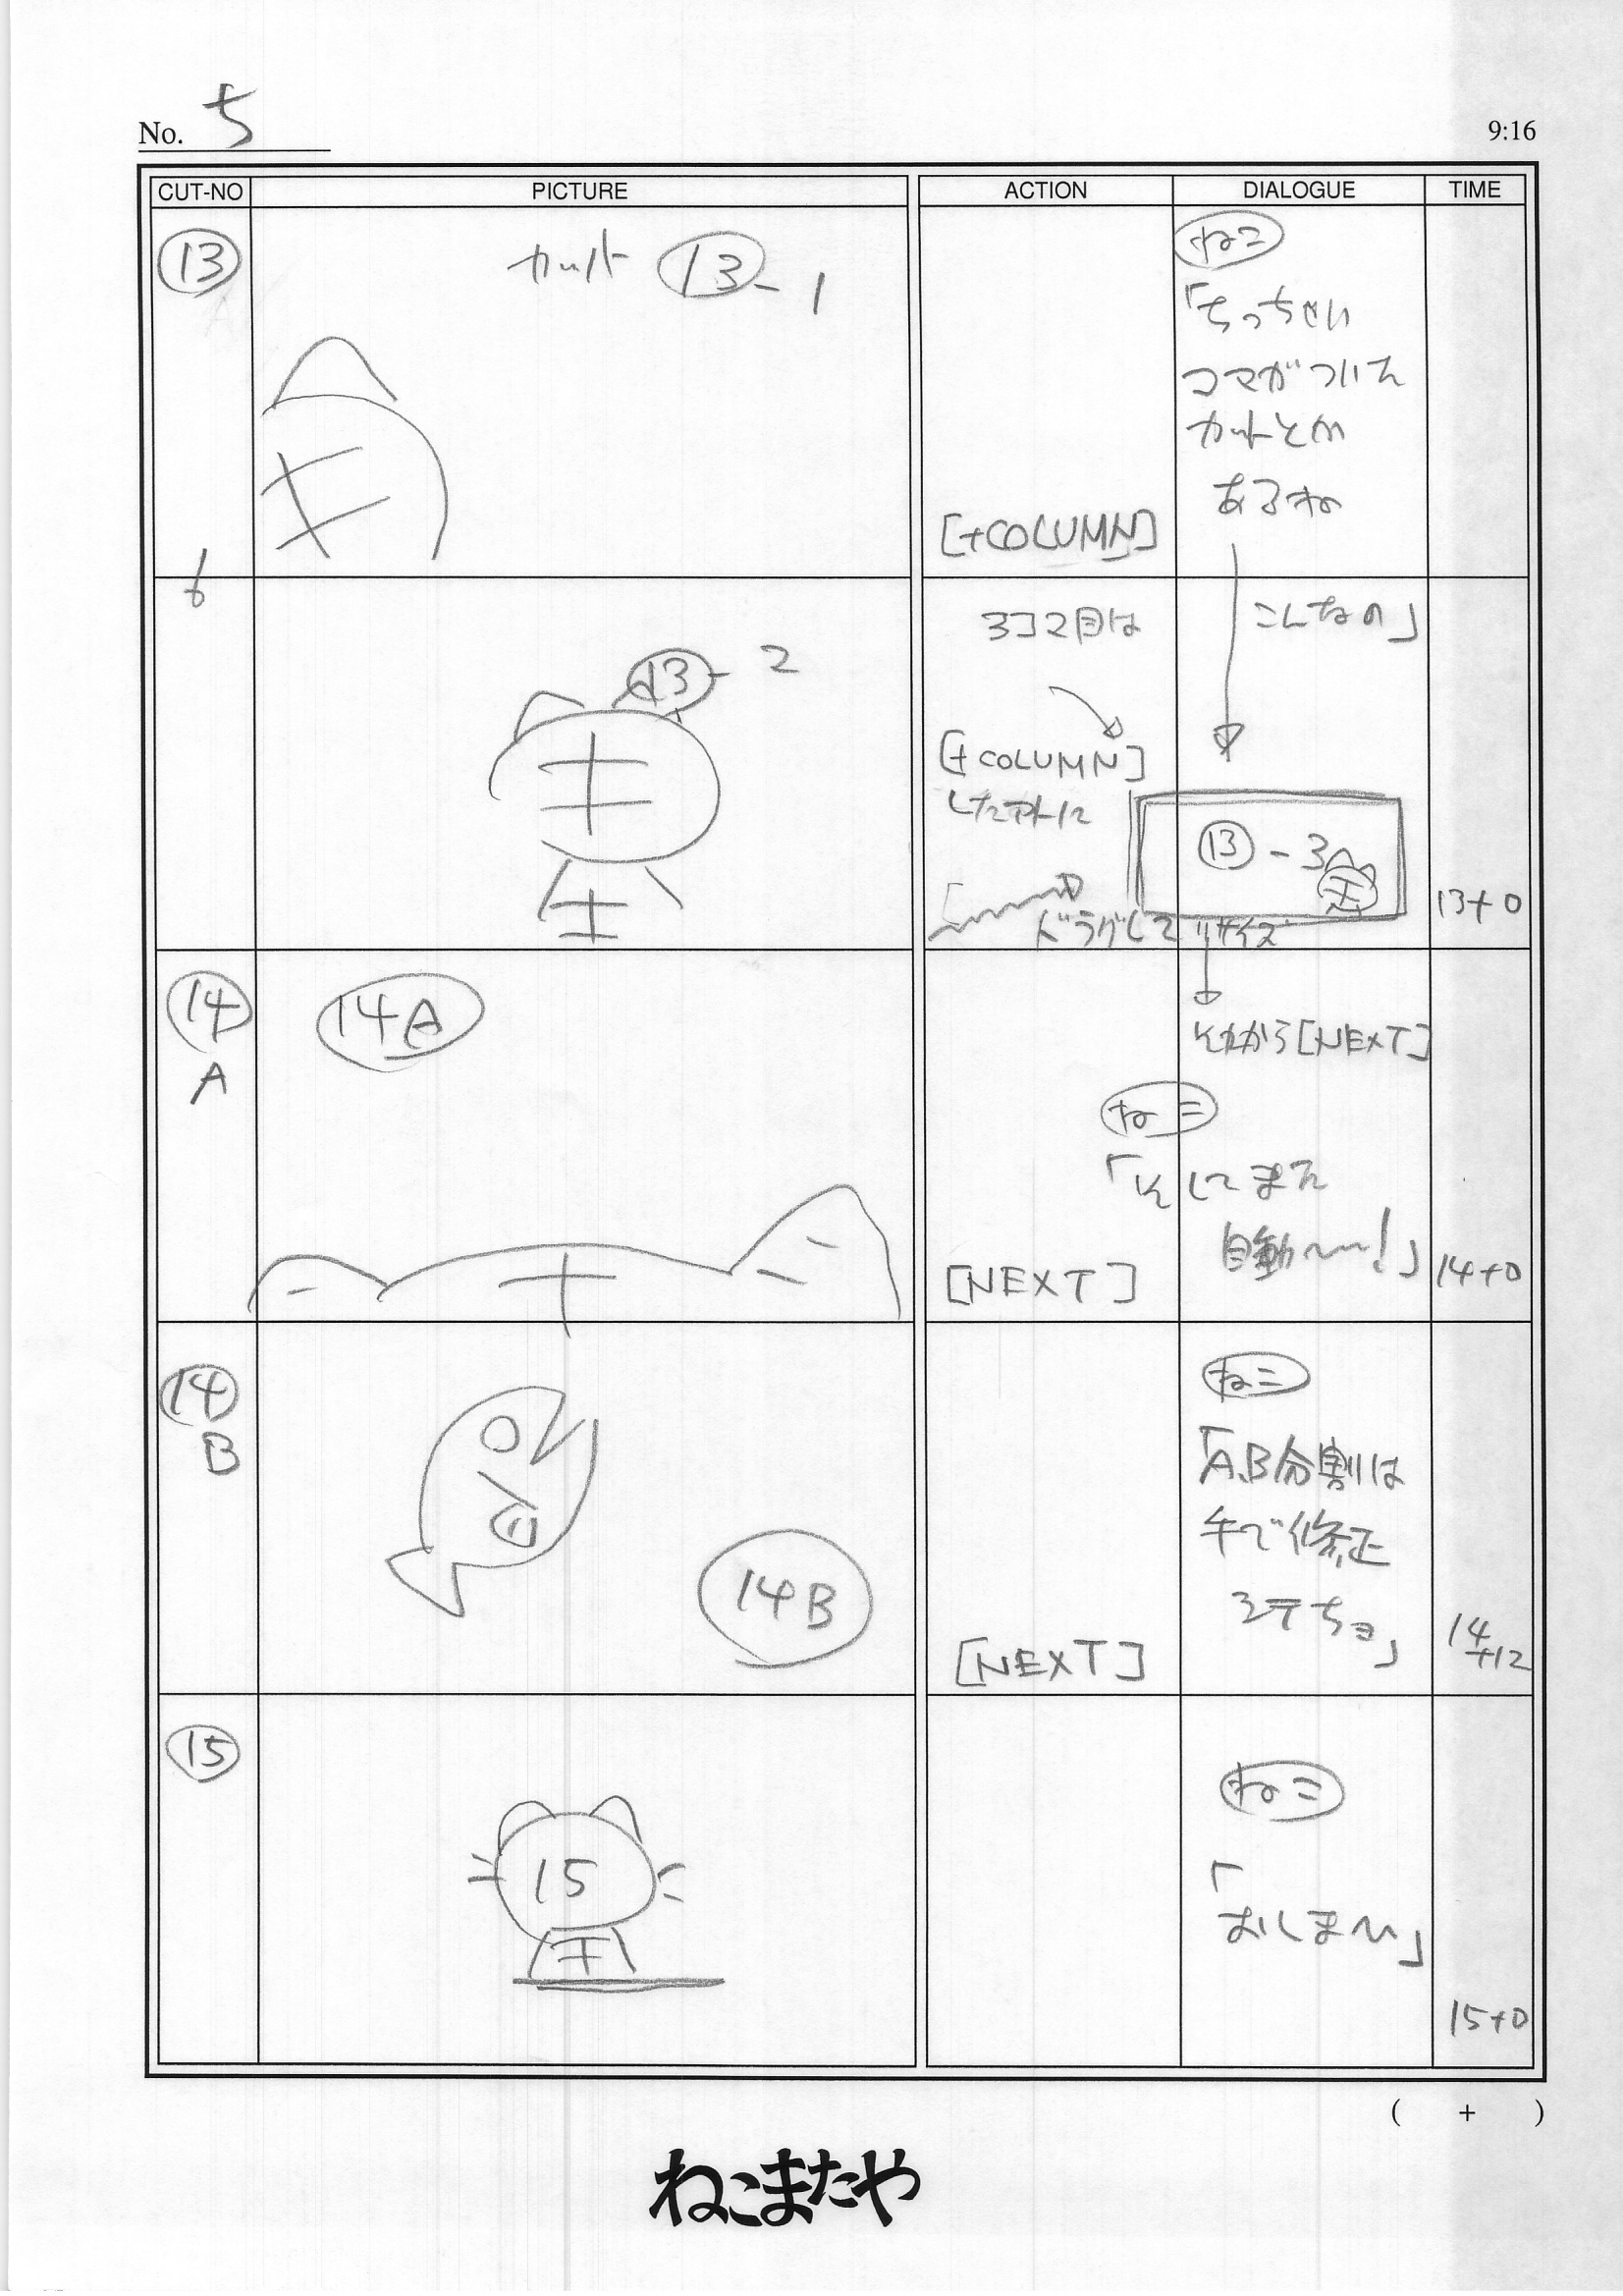 No. 5
9:16
CUT-NO
PICTURE
ACTION
DIALOGUE
TIME
13
カット 13-1
[+COLUMN]
ねこ
「ちっちゃい
コマがついた
カットとか
あるね
13-2
3コ2目は
[+COLUMN]
したアトに
ドラグして リサイズ
こんなの」
13-3
13+0
14
A
14A
[NEXT]
それから[NEXT]
ねこ
「そしてまた
自動〜〜!」
14+0
14
B
14B
[NEXT]
ねこ
「A.B分割は
手で修正
シテちョ」
14
+12
15
15
ねこ
「
おしまい」
15+0
( + )
ねこまたや